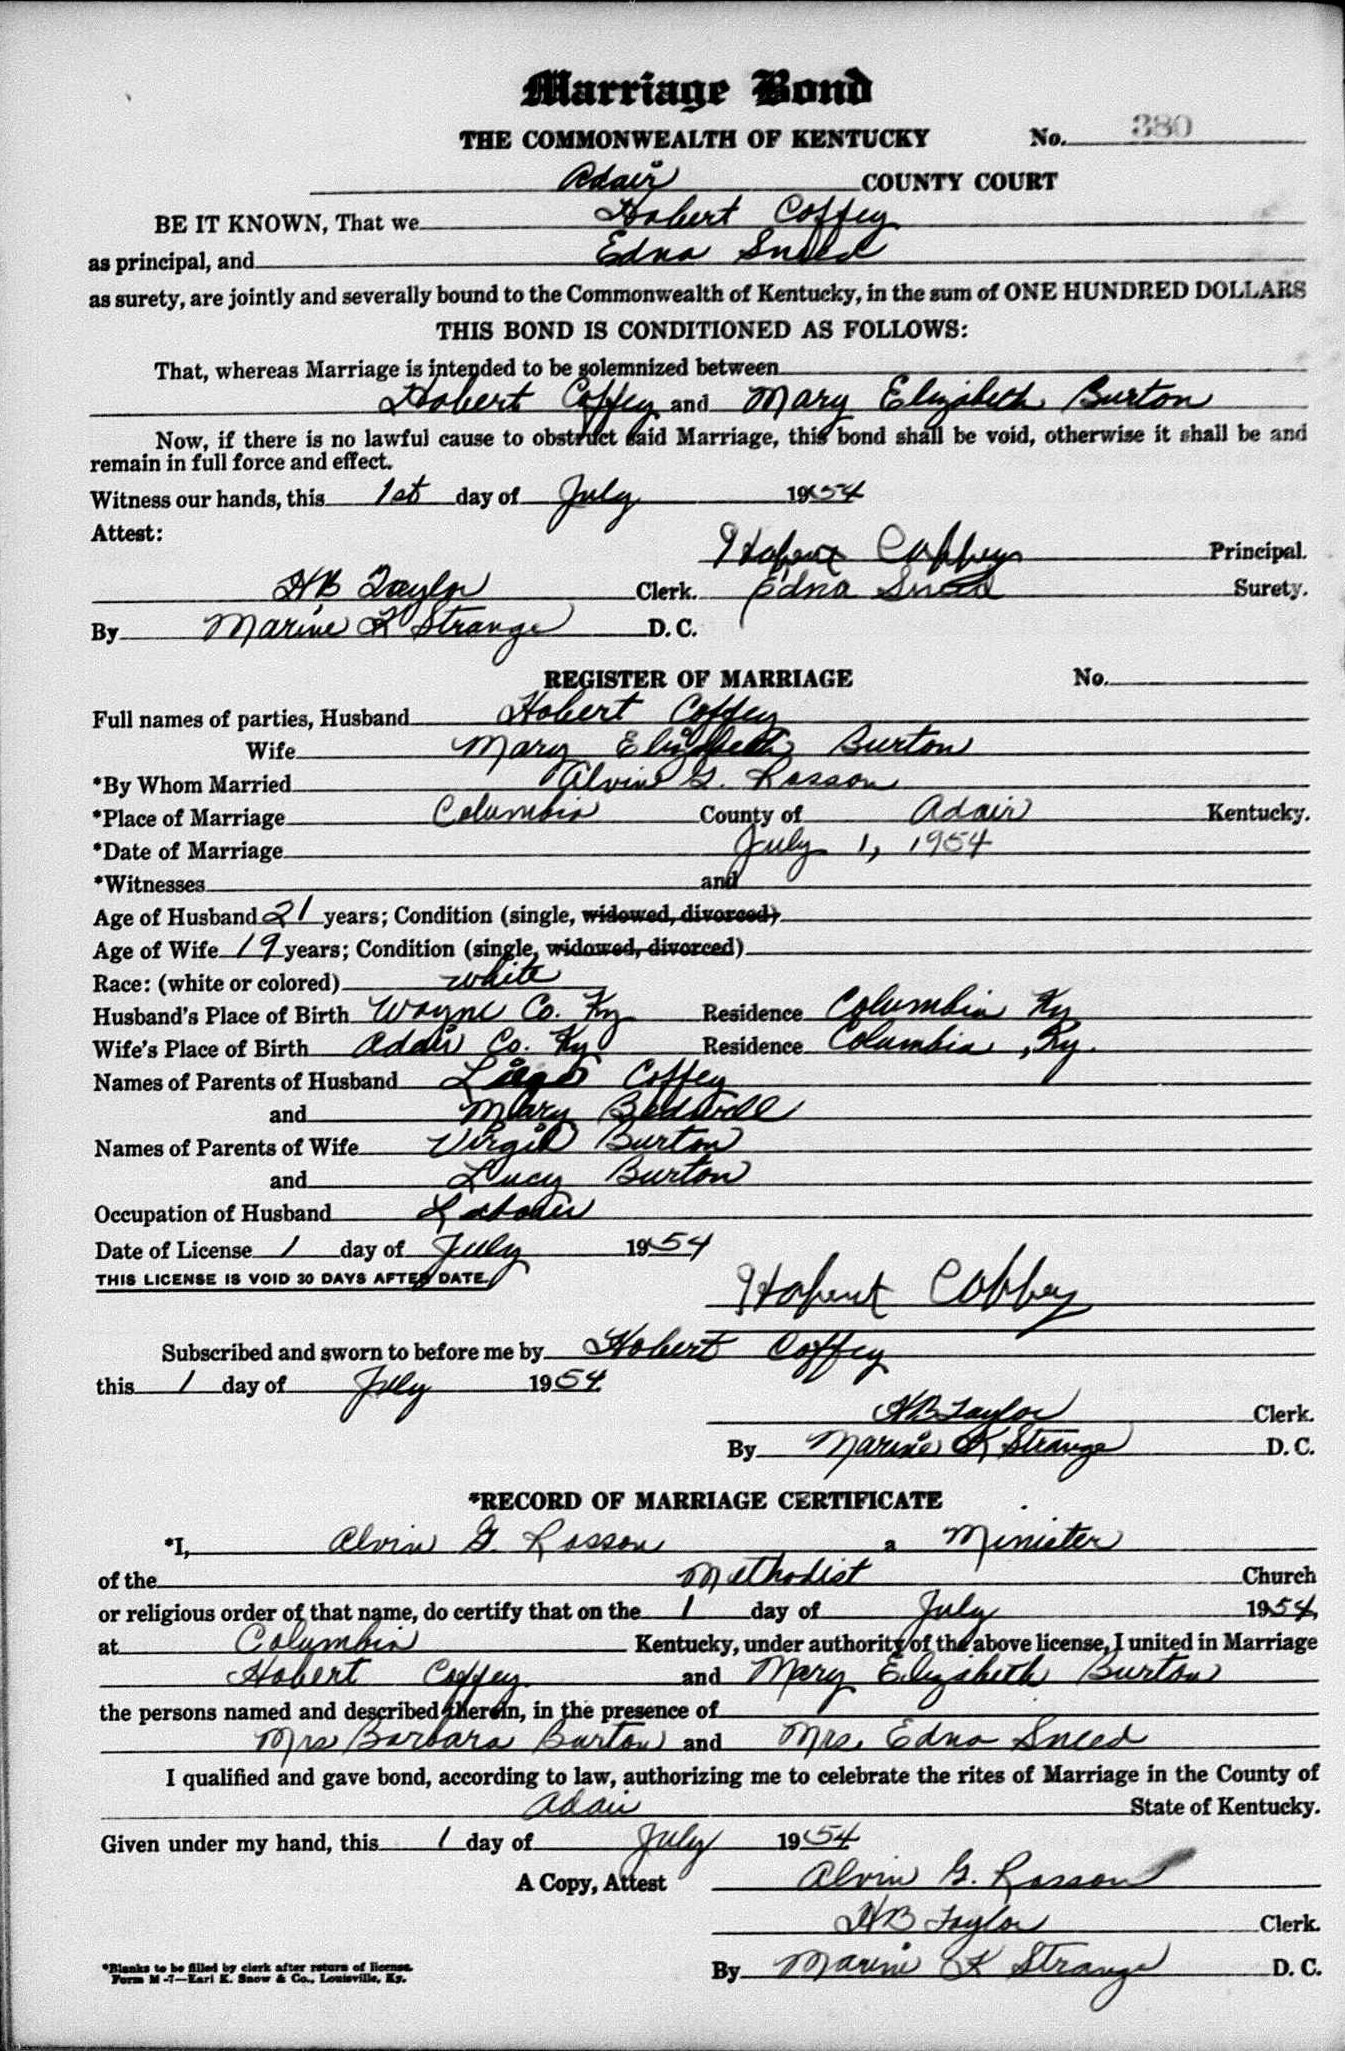 Marriage Bond
THE COMMONWEALTH OF KENTUCKY No. 380
Adair COUNTY COURT
BE IT KNOWN, That we Hobert Coffey
as principal, and Edna Sneed
as surety, are jointly and severally bound to the Commonwealth of Kentucky, in the sum of ONE HUNDRED DOLLARS
THIS BOND IS CONDITIONED AS FOLLOWS:
That, whereas Marriage is intended to be solemnized between
Hobert Coffey and Mary Elizabeth Burton
Now, if there is no lawful cause to obstruct said Marriage, this bond shall be void, otherwise it shall be and
remain in full force and effect.
Witness our hands, this 1st day of July 1954
Attest:
Hobert Coffey Principal.
HB Taylor Clerk. Edna Sneed Surety.
By Marine K Strange D. C.
REGISTER OF MARRIAGE No.
Full names of parties, Husband Hobert Coffey
Wife Mary Elizabeth Burton
*By Whom Married Alvin G. Rosson
*Place of Marriage Columbia County of Adair Kentucky.
*Date of Marriage July 1, 1954
*Witnesses and
Age of Husband 21 years; Condition (single, widowed, divorced)
Age of Wife 19 years; Condition (single, widowed, divorced)
Race: (white or colored) white
Husband's Place of Birth Wayne Co. Ky Residence Columbia Ky
Wife's Place of Birth Adair Co. Ky Residence Columbia, Ky.
Names of Parents of Husband Coffey
and Mary
Names of Parents of Wife Virgil Burton
and Lucy Burton
Occupation of Husband Laborer
Date of License 1 day of July 1954
THIS LICENSE IS VOID 30 DAYS AFTER DATE.
Hobert Coffey
Subscribed and sworn to before me by Hobert Coffey
this 1 day of July 1954
HB Taylor Clerk.
By Marine K Strange D. C.
*RECORD OF MARRIAGE CERTIFICATE
*I, Alvin G. Rosson a Minister
of the Methodist Church
or religious order of that name, do certify that on the 1 day of July 1954,
at Columbia Kentucky, under authority of the above license, I united in Marriage
Hobert Coffey and Mary Elizabeth Burton
the persons named and described therein, in the presence of
Mrs Barbara Burton and Mrs. Edna Sneed
I qualified and gave bond, according to law, authorizing me to celebrate the rites of Marriage in the County of
Adair State of Kentucky.
Given under my hand, this 1 day of July 1954
A Copy, Attest Alvin G. Rosson
HB Taylor Clerk.
*Blanks to be filled by clerk after return of license.
Form M-7—Earl K. Snow & Co., Louisville, Ky.
By Marine K Strange D. C.